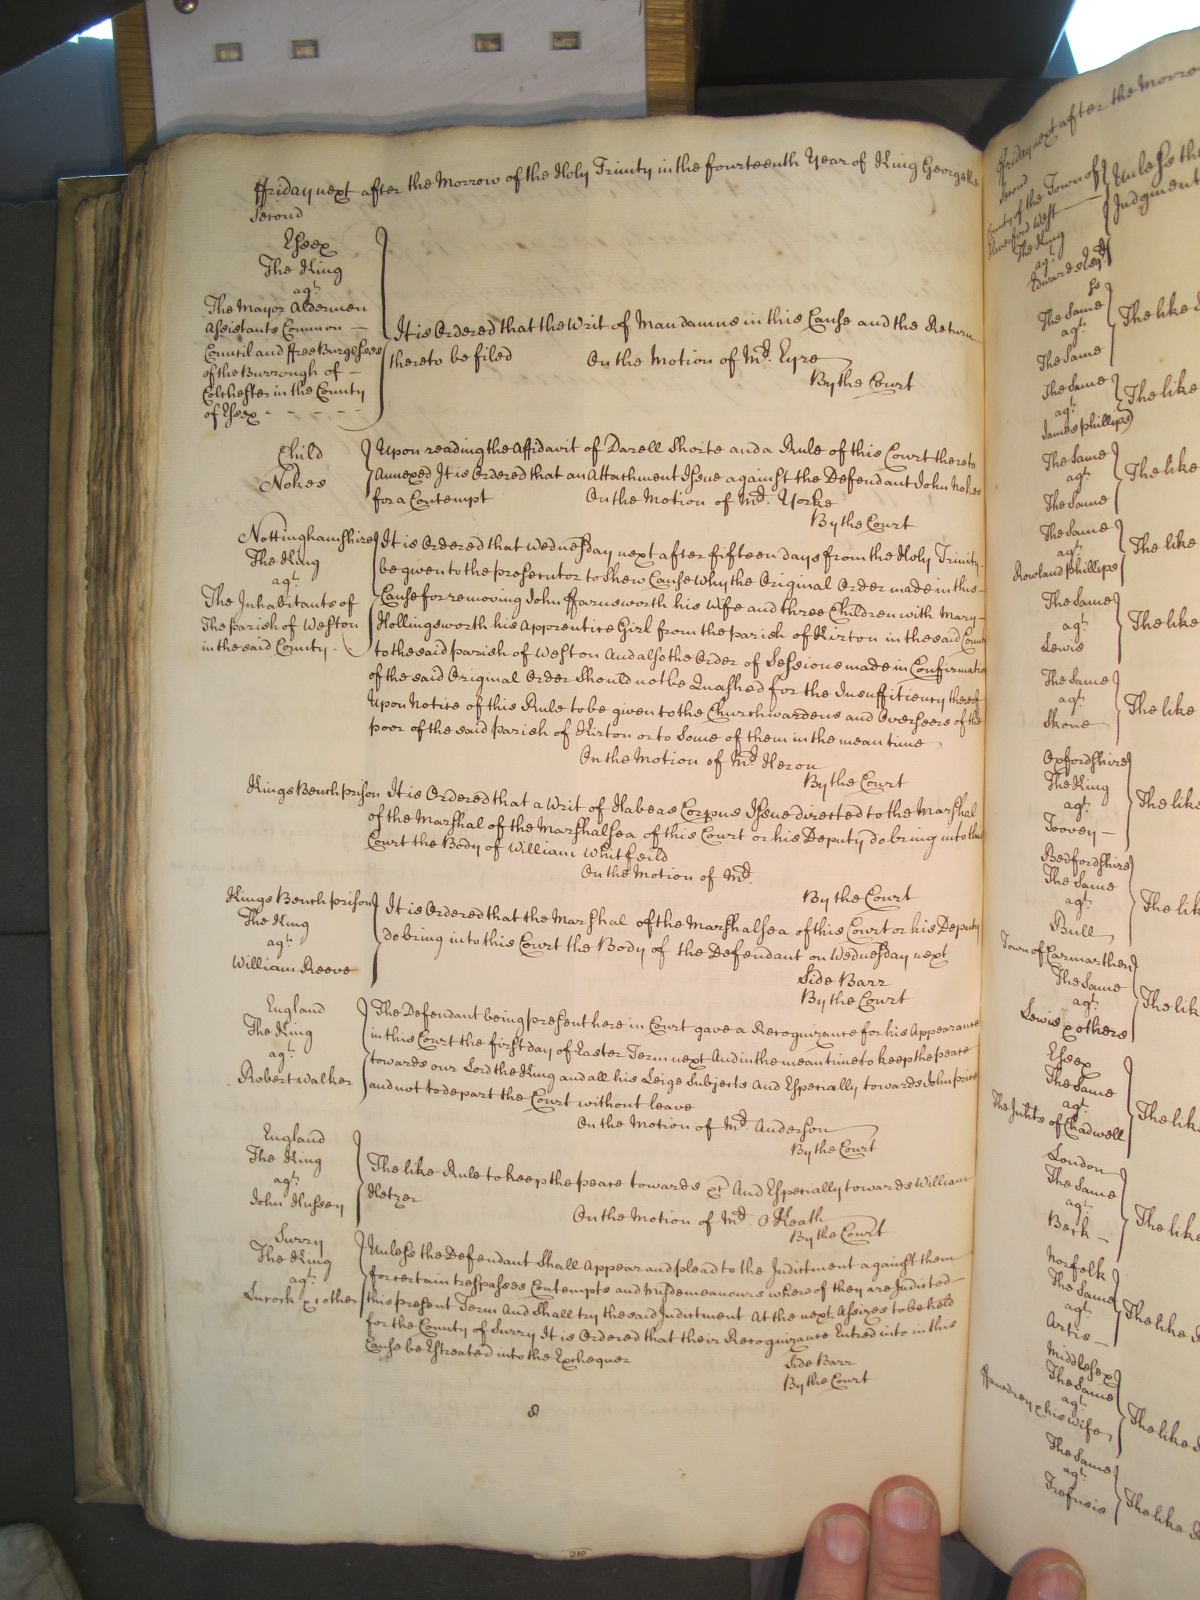 ffriday next after the Morrow of the Holy Trinity in the fourteenth Year of King George the
Second
Essex
The King
agt.
The Mayor Aldermen
Assistants Common
Council and ffree Burgesses
of the Burrough of
Colchester in the County
of Essex
It is Ordered that the Writ of Mandamus in this Cause and the Return
thereto be filed On the Motion of Mr. Eyre
By the Court
Child
Nokes
Upon reading the Affidavit of Darell Shorte and a Rule of this Court thereto
Annexed It is Ordered that an Attachment Issue against the Defendant John Nokes
for a Contempt On the Motion of Mr. Yorke
By the Court
Nottinghamshire
The King
agt.
The Inhabitants of
The parish of Weston
in the said County
It is Ordered that Wednesday next after fifteen days from the Holy Trinity
be given to the prosecutor to shew Cause why the Original Order made in this
Cause for removing John ffarnsworth his Wife and three Children with Mary
Hollingsworth his Apprentice Girl from the parish of Kirton in the said County
to the said parish of Weston And also the Order of Sessions made in Confirmation
of the said Original Order should not be Quashed for the Insufficiency thereof
Upon Notice of this Rule to be given to the Churchwardens and Overseers of the
poor of the said parish of Kirton or to Some of them in the mean time
On the Motion of Mr. Heron
By the Court
Kings Bench prison It is Ordered that a Writ of Habeas Corpus Issue directed to the Marshal
of the Marshal of the Marshalsea of this Court or his Deputy do bring into this
Court the Body of William Whitfeild
On the Motion of Mr.
By the Court
Kings Bench prison
The King
agt.
William Reeve
It is Ordered that the Marshal of the Marshalsea of this Court or his Deputy
do bring into this Court the Body of the Defendant on Wednesday next
Side Barr
By the Court
England
The King
agt.
Robert Walker
The Defendant being present here in Court gave a Recognizance for his Appearance
in this Court the first day of Easter Term next And in the mean time to keep the peace
towards our Lord the King and all his Leige Subjects And Especially towards John price
and not to depart the Court without leave
On the Motion of Mr. Anderson
By the Court
England
The King
agt.
John Hussey
The like Rule to keep the peace towards &c And Especially towards William
Hetzer
On the Motion of Mr. O Keath
By the Court
Surry
The King
agt.
Lucock & other
Unless the Defendant Shall Appear and plead to the Indictment against them
for certain trespasses Contempts and Misdemeanours whereof they are Indicted
this present Term And Shall try the said Indictment At the next Assizes to be held
for the County of Surry It is Ordered that their Recognizance Entred into in this
Cause be Estreated into the Exchequer
Side Barr
By the Court
310
ffriday next after the Morrow
Second
County of the Town of
Haverford West
The King
agt.
Edwards Esqr.
Unless the
Judgment
The Same
agt.
The Same
The like
The Same
agt.
James phillips
The like
The Same
agt.
The Same
The like
The Same
agt.
Rowland phillips
The like
The Same
agt.
Lewis
The like
The Same
agt.
Skone
The like
Oxfordshire
The King
agt.
Toovey
The like
Bedfordshire
The Same
agt.
Bull
The like
Town of Carmarthen
The Same
agt.
Lewis & others
The like
Essex
The Same
agt.
The Inhts of Chadwell
The like
London
The Same
agt.
Beck
The like
Norfolk
The Same
agt.
Artis
The like
Middlesex
The Same
agt.
& his Wife
The like
The Same
agt.
Trefusis
The like